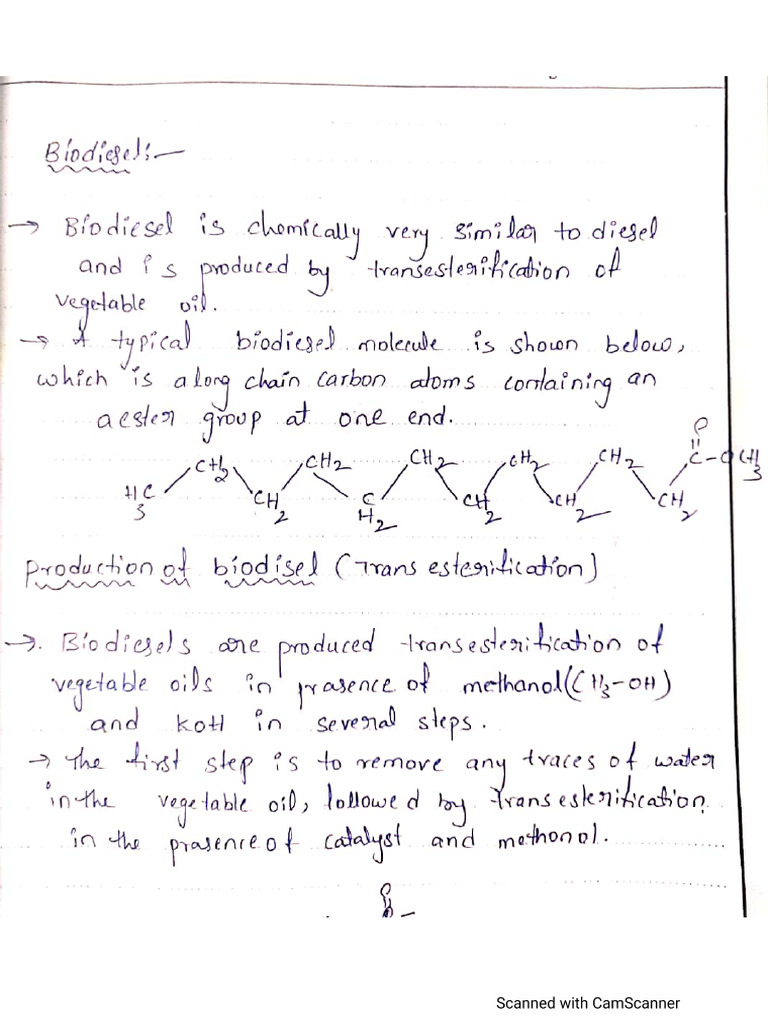 Biodiesel:-
→ Biodiesel is chemically very similar to diesel
and is produced by transesterification of
vegetable oil.
→ A typical biodiesel molecule is shown below,
which is a long chain carbon atoms containing an
aester group at one end.
O
CH2 CH2 CH2 CH2 CH2 C-OCH3
H3C CH2 CH2 CH2 CH2 CH2
Production of biodisel (Trans esterification)
→. Biodiesels are produced transesterification of
vegetable oils in prasence of methanol (CH3-OH)
and KOH in several steps.
→ The first step is to remove any traces of water
in the vegetable oil, followed by transesterification
in the prasence of catalyst and methonol.
Scanned with CamScanner